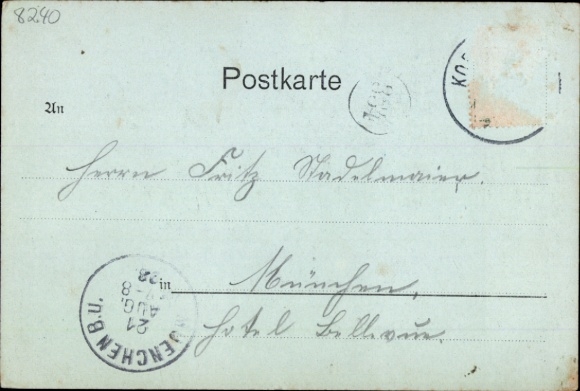 8240
Postkarte
An
Herrn Fritz Stadelmaier.
in München,
Hotel Bellevue.
MUENCHEN B.U.
21
AUG.
7-8